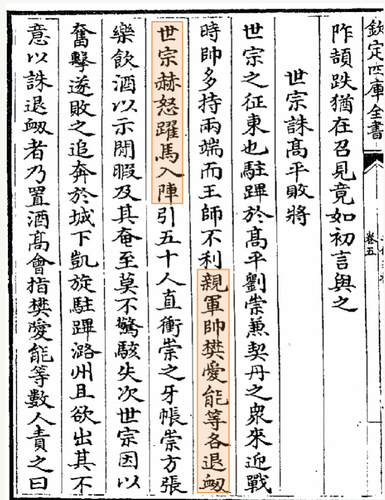 欽定四庫全書
卷五
阼頡跌猶在召見竟如初言與之
世宗誅髙平敗將
世宗之征東也駐蹕於髙平劉崇兼契丹之衆來迎戰
時帥多持兩端而王師不利親軍帥樊愛能等各退衂
世宗赫怒躍馬入陣引五十人直衝崇之牙帳崇方張
樂飲酒以示閒暇及其奄至莫不驚駭失次世宗因以
奮擊遂敗之追奔於城下凱旋駐蹕潞州且欲出其不
意以誅退衂者乃置酒髙會指樊愛能等數人責之曰